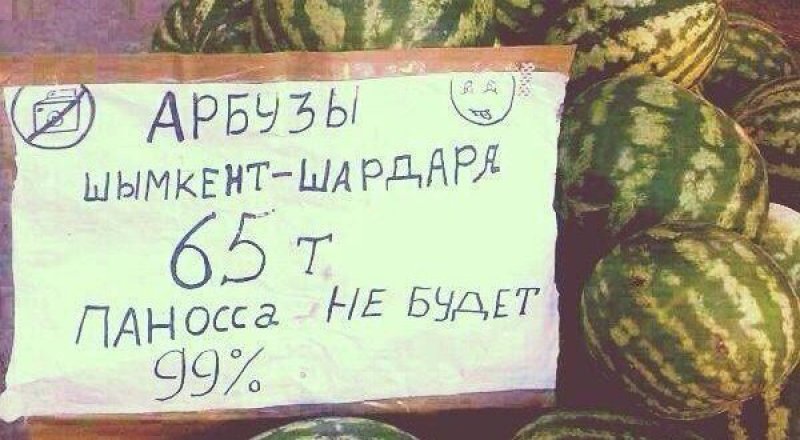 АРБУЗЫ
ШЫМКЕНТ-ШАРДАРЯ
65 т
ПАНОССА НЕ БУДЕТ
99%